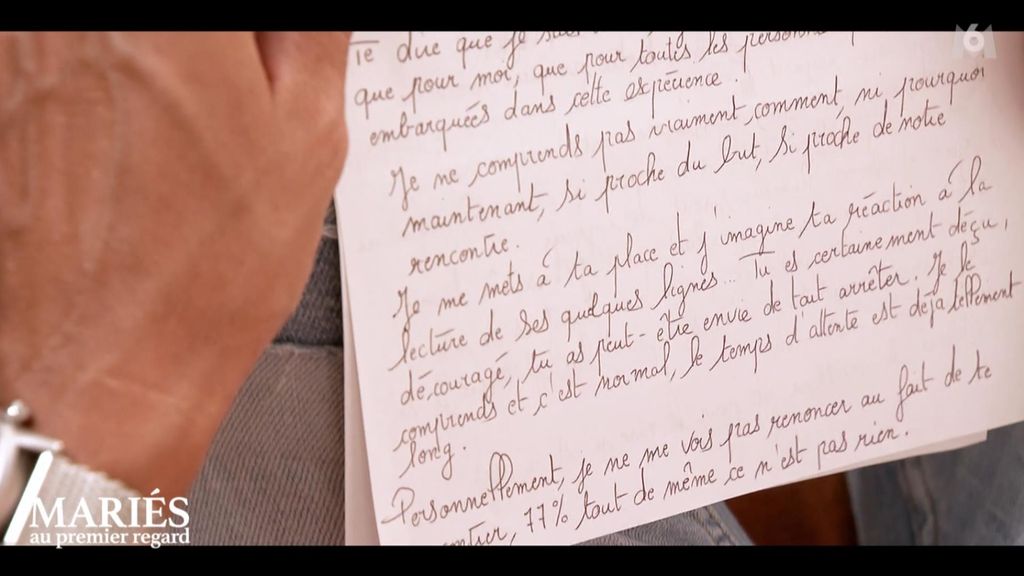 Te dire que je suis
que pour moi, que pour toutes les personnes
embarqués dans cette expérience.
Je ne comprends pas vraiment, comment, ni pourquoi
maintenant, si proche du but, si proche de notre
rencontre.
Je me mets à ta place et j'imagine ta réaction à la
lecture de ses quelques lignes... Tu es certainement déçu,
découragé, tu as peut-être envie de tout arrêter. Je le
comprends et c'est normal, le temps d'attente est déjà tellement
long.
Personnellement, je ne me vois pas renoncer au fait de te
77% tout de même ce n'est pas rien.
6
MARIÉS
au premier regard